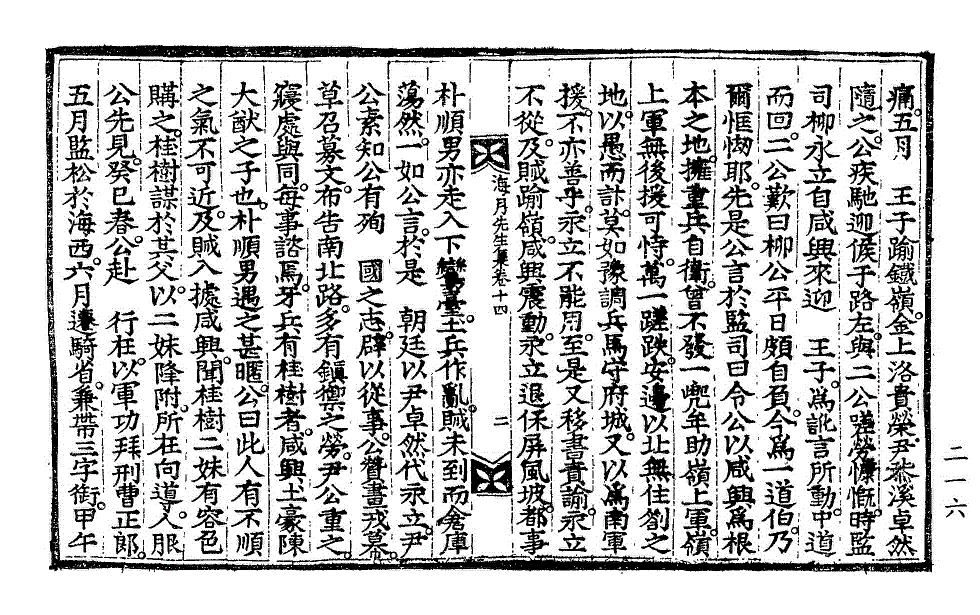 痛。五月　王子踰鐵嶺。金上洛貴榮尹黍溪卓然
隨之。公疾馳迎候于路左。與二公嗟勞慷慨。時監
司柳永立自咸興來迎　王子。爲訛言所動。中道
而回。二公歎曰柳公平日頗自負。今爲一道伯。乃
爾恇㤼耶。先是公言於監司曰。令公以咸興爲根
本之地。擁重兵自衛。曾不發一兜年助嶺上軍。嶺
上軍無後援可恃。萬一蹉跌。安邊以北無住劄之
地。以愚而計。莫如豫調兵馬守府城。又以爲南軍
援。不亦善乎。永立不能用。至是又移書責諭。永立
不從。及賊踰嶺。咸興震動。永立退保屛風坡。都事
海月先生集卷十四
二
朴順男亦走入下鸞臺。土兵作亂。賊未到而倉庫
蕩然。一如公言。於是　朝廷以尹卓然代永立。尹
公素知公有殉　國之志。辟以從事。公贊畫戎幕。
草召募文。布告南北路。多有鎭禦之勞。尹公重之。
寢處與同。每事諮焉。牙兵有桂樹者。咸興土豪陳
大猷之子也。朴順男遇之甚暱。公曰此人有不順
之氣。不可近。及賊入據咸興。聞桂樹二妹有容色
購之。桂樹謀於其父。以二妹降附。所在向導。人服
公先見。癸巳春。公赴　行在。以軍功拜刑曹正郞。
五月監松於海西。六月遷騎省。兼帶三字銜。甲午
二一六